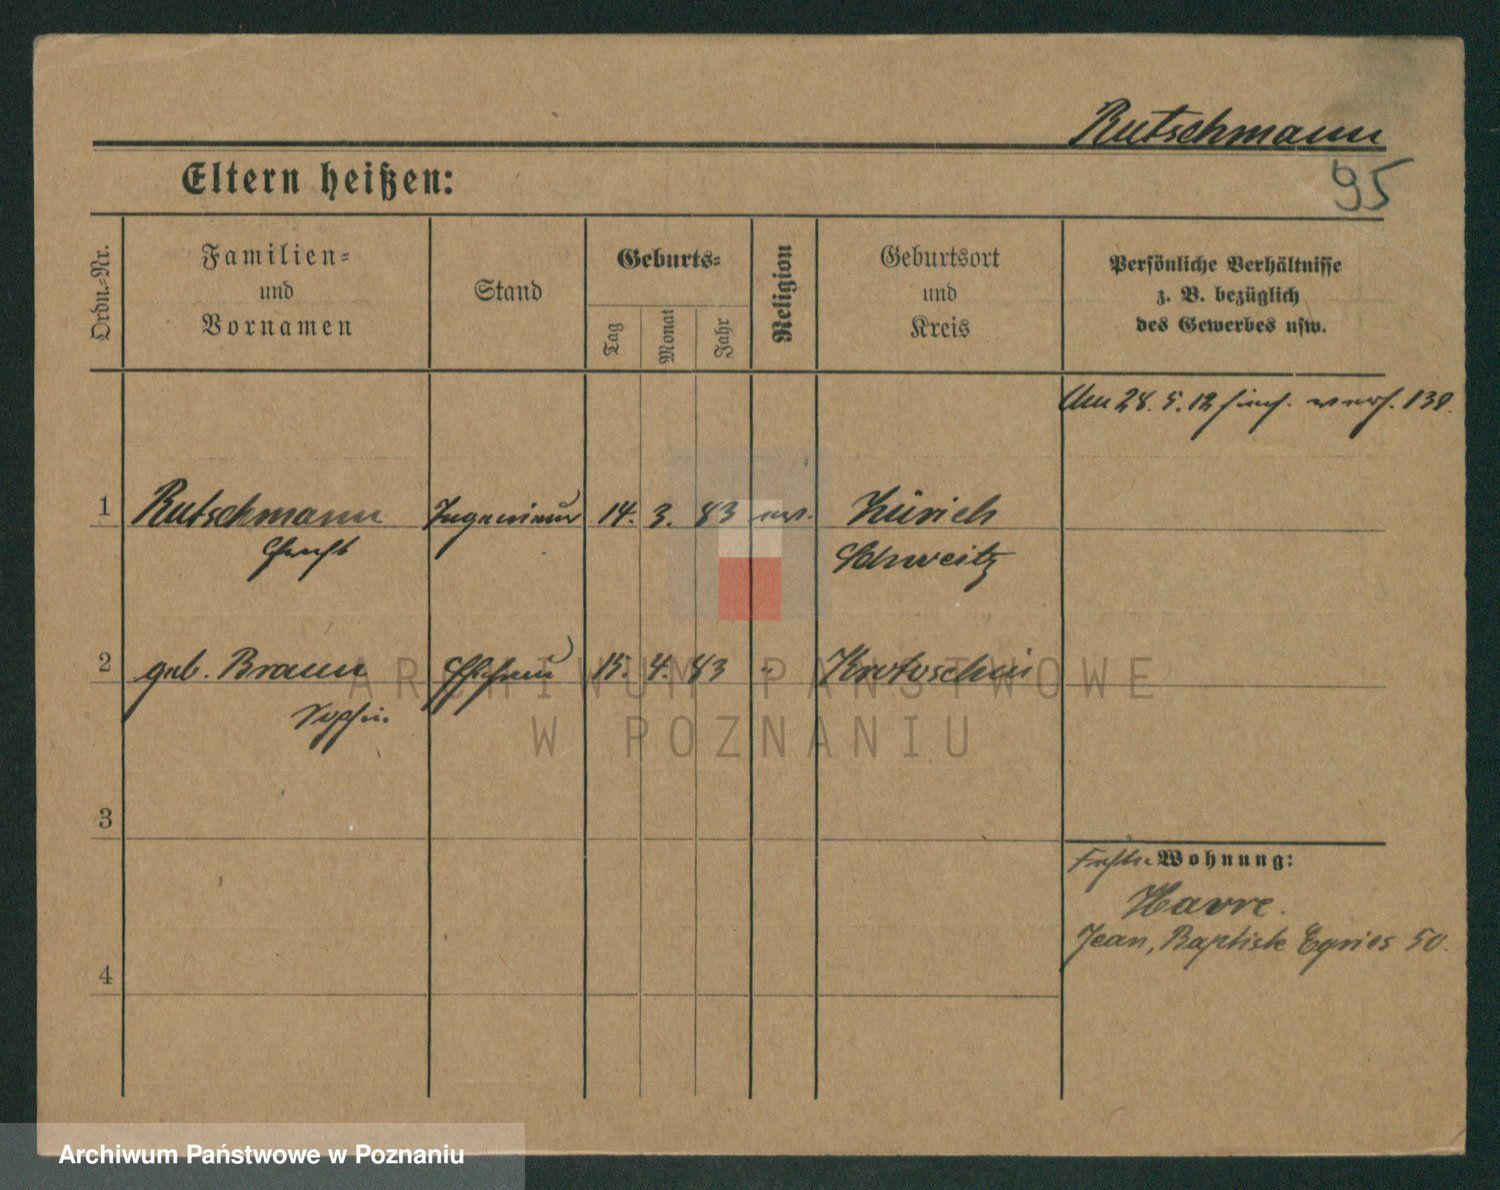 Rutschmann
95
Eltern heißen:
Ordn.-Nr.
Familien-
und
Vornamen
Stand
Geburts-
Tag
Monat
Jahr
Religion
Geburtsort
und
Kreis
Persönliche Verhältnisse
z. B. bezüglich
des Gewerbes usw.
28. 5. 12
1 Rutschmann Ingenieur 14. 3. 83 Zürich
Schweitz
2 geb. Braun Ehefrau 15. 4. 83 " Krotoschin
Sophie
3
4
Wohnung:
Havre.
Jean, Baptiste Eyries 50.
ARCHIWUM PAŃSTWOWE
W POZNANIU
Archiwum Państwowe w Poznaniu